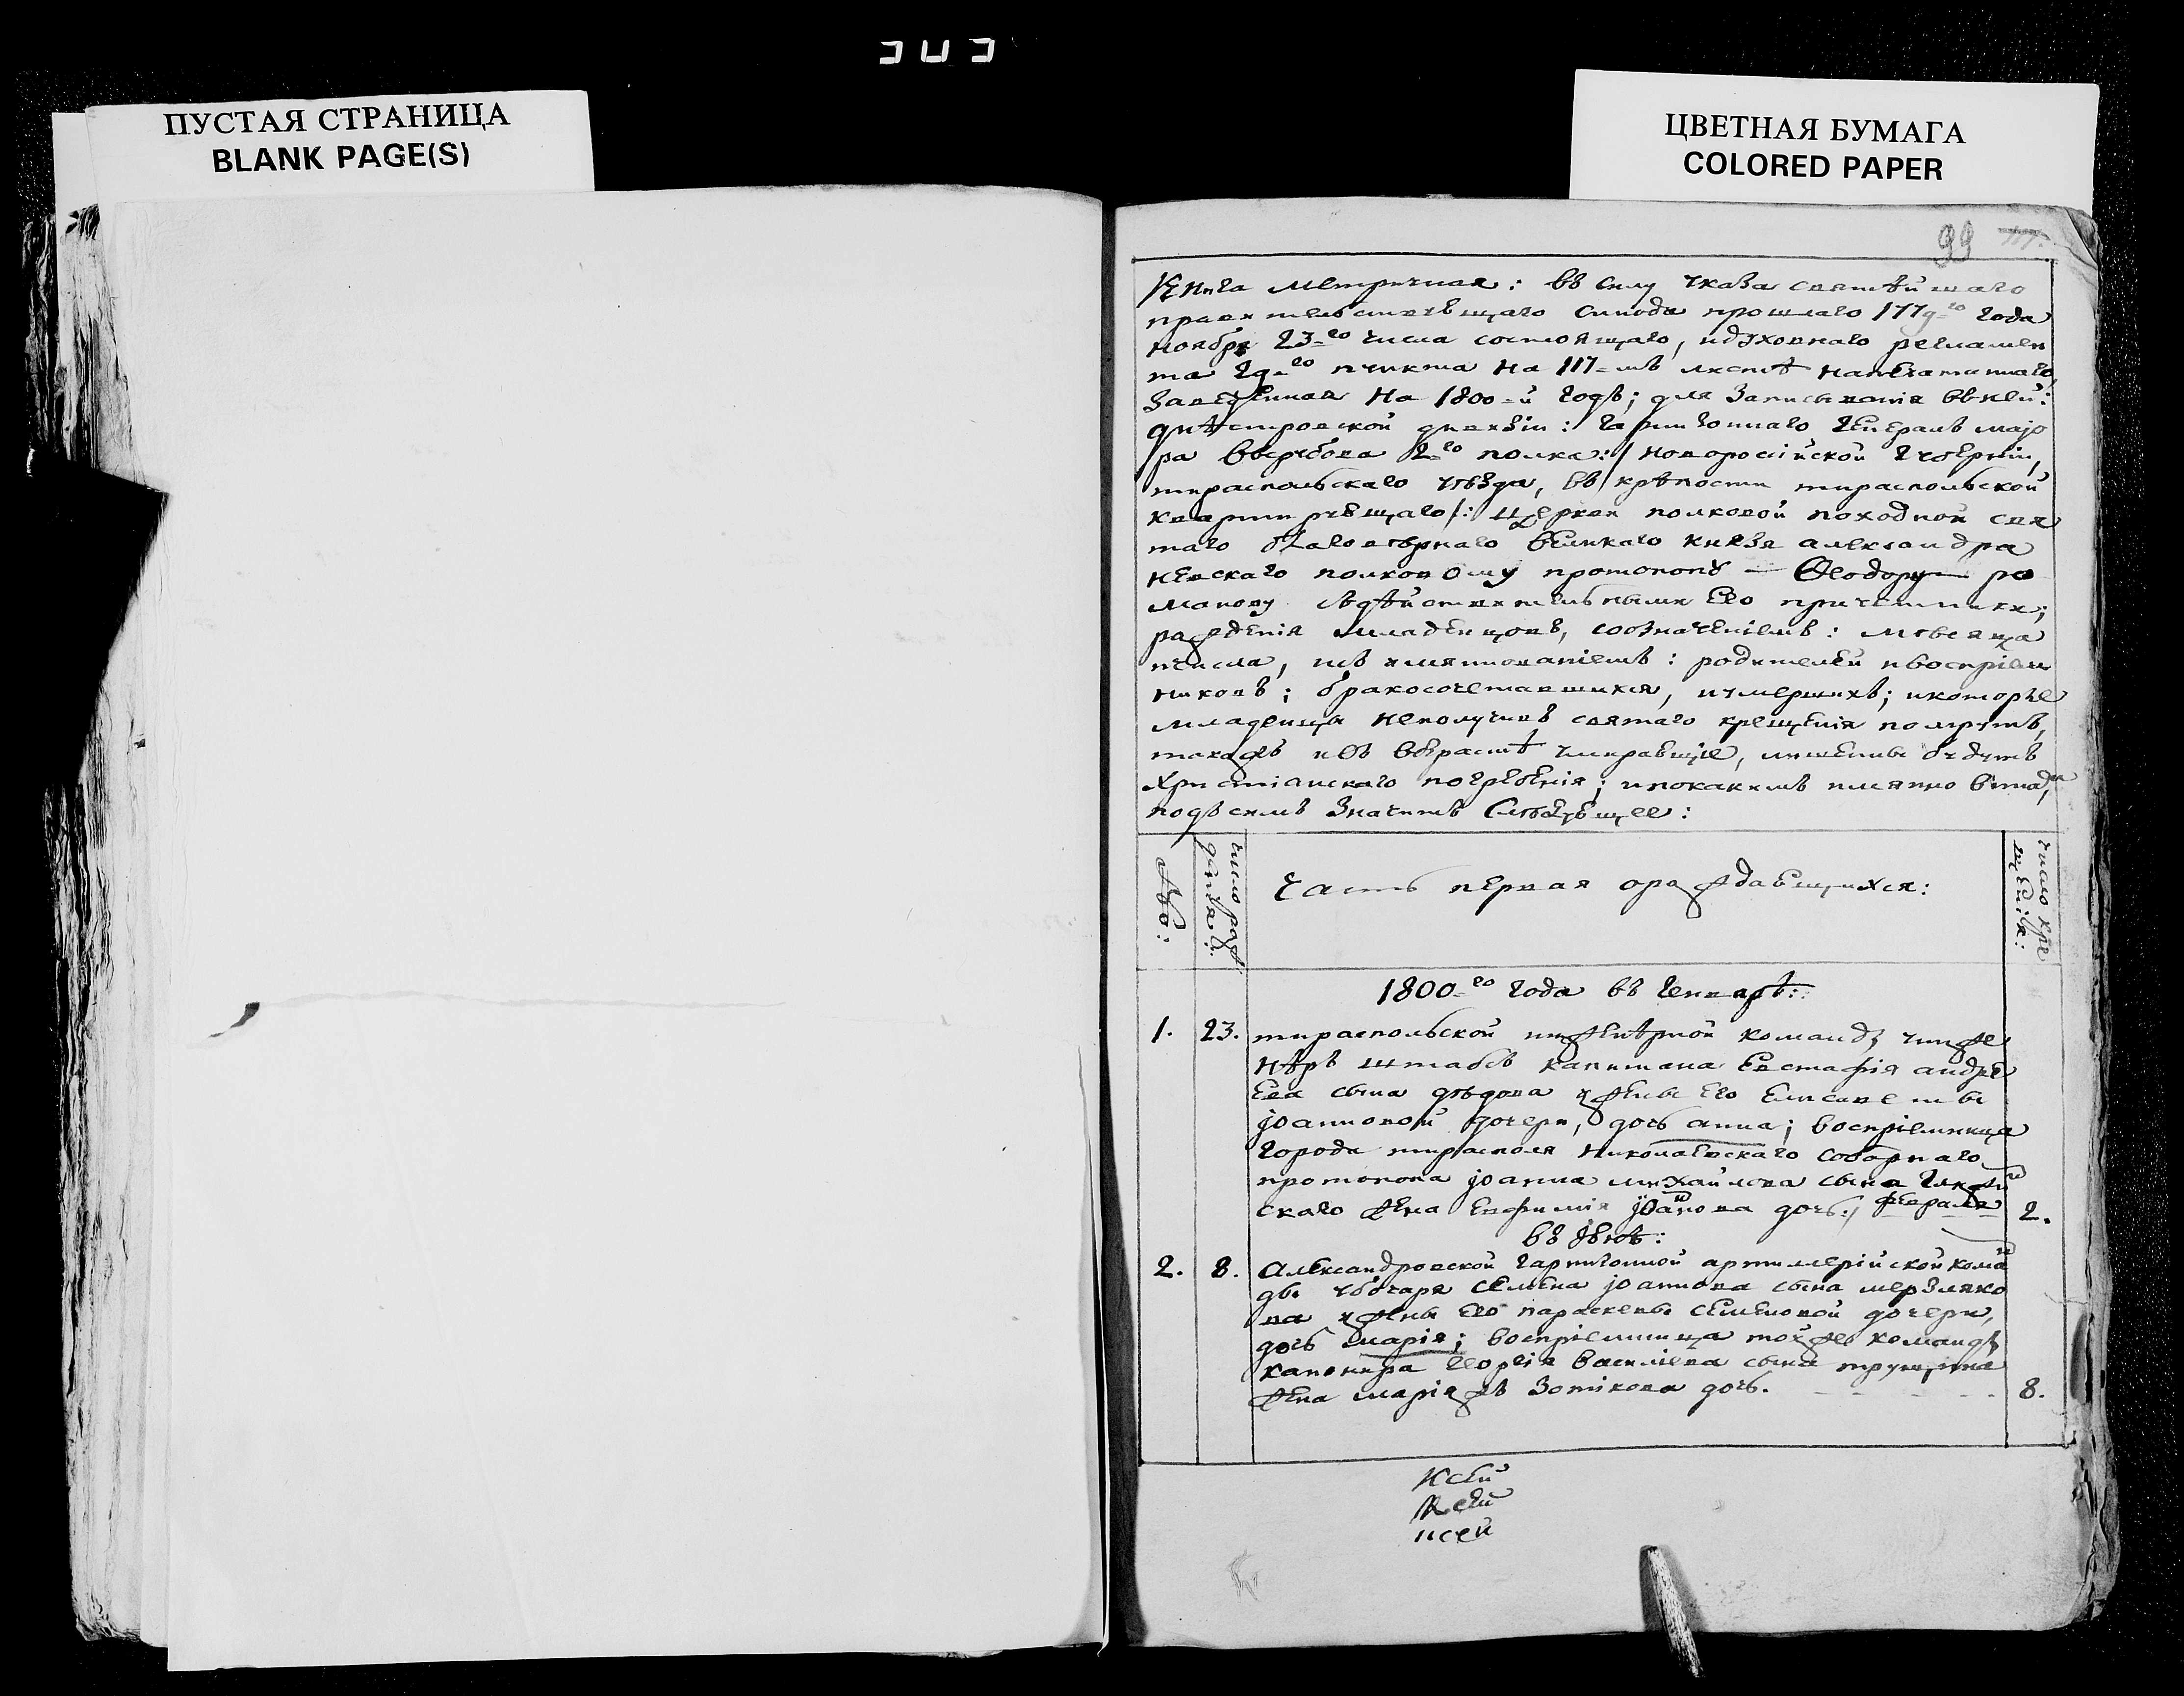 ПУСТАЯ СТРАНИЦА
BLANK PAGE(S)
ЦВЕТНАЯ БУМАГА
COLORED PAPER
99
Книга метричная: въ силу указа святѣйшаго
правительствующаго синода прошлаго 1779-го года
ноября 23-го числа состоящаго, идуховнаго регламен
та 29-го пункта на 117-мъ листѣ напечатаннаго,
заведенная на 1800-й годъ; для записыванія въней:
днѣстровской дивизіи: гарнизоннаго генералъ мајо
ра 2-го полка:/ новоросійской губерніи,
тираспольскаго уѣзда, въ крѣпости тираспольской
квартирующаго/: церкви полковой походной свя
таго благовѣрнаго великаго князя александра
невскаго полковому протопопу — Ѳеодору ро
манову сьдѣйствительными его причетники;
раждения младенцовъ, созначеніемъ: мѣсяца
ичисла, исъ имянованіемъ: родителей ивоспріем
никовъ; бракосочетавшихся, иумершихъ; икоторые
младенцы неполучивъ святаго крещенія помрутъ,
такожъ ивъ возрастѣ умиравшіе, лишены будутъ
христіанскаго погребенія; ипокакимъ имянно винамъ,
подъ симъ значитъ слѣдующее:
число раж
денія:
Часть первая ораждающихся:
число кре
щенія:
1800-го года въ генварѣ:
1. 23. тираспольской инженѣрной команды инже
нѣръ штабсъ капитана Евстафія андре
ева сына дѣдова ижены его елисаветы
јоанновой дочери, дочь анна; воспріемница
города тирасполя николаевскаго соборнаго
протопопа јоанна михайлова сына
скаго жена евфимія јоаннова дочь:/ февраля 2.
въ јюнѣ:
2. 8. Александровской гарнизонной артиллерійской коман
ды убочаря семена јоаннова сына мерзляко
ва ижены его параскевы семеновой дочери,
дочь марія; воспріемница тойжъ команды
канонира георгія василіева сына
жена маріяжъ зотикова дочь. 8.
ксей
ксей
ксей